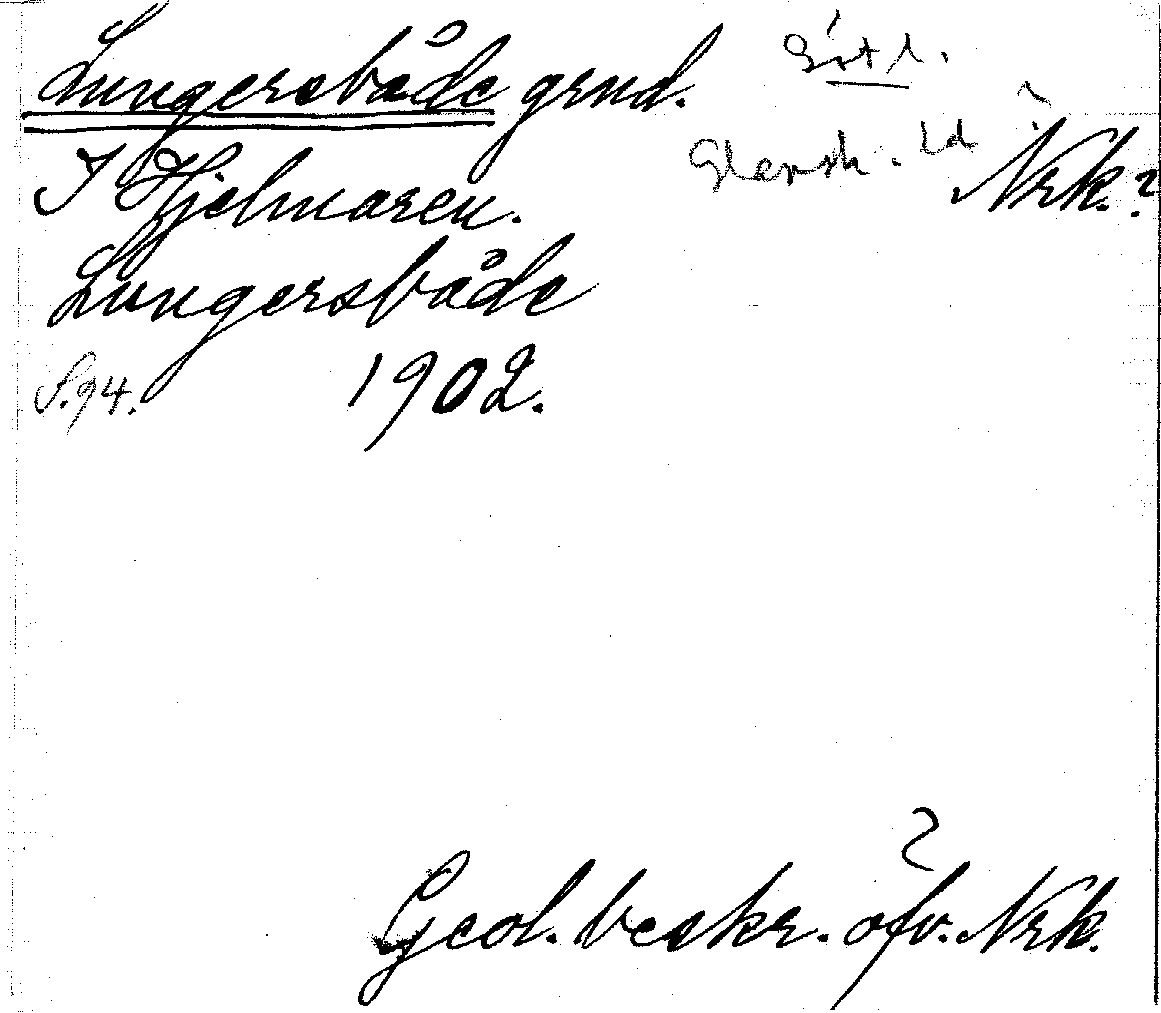 Lungersbåde grnd. Götl.
Glansh. ld ? Nrk.?
I Hjelmaren.
Lungersbåde
S.94. 1902.
?
Geol. beskr. öfv. Nrk.